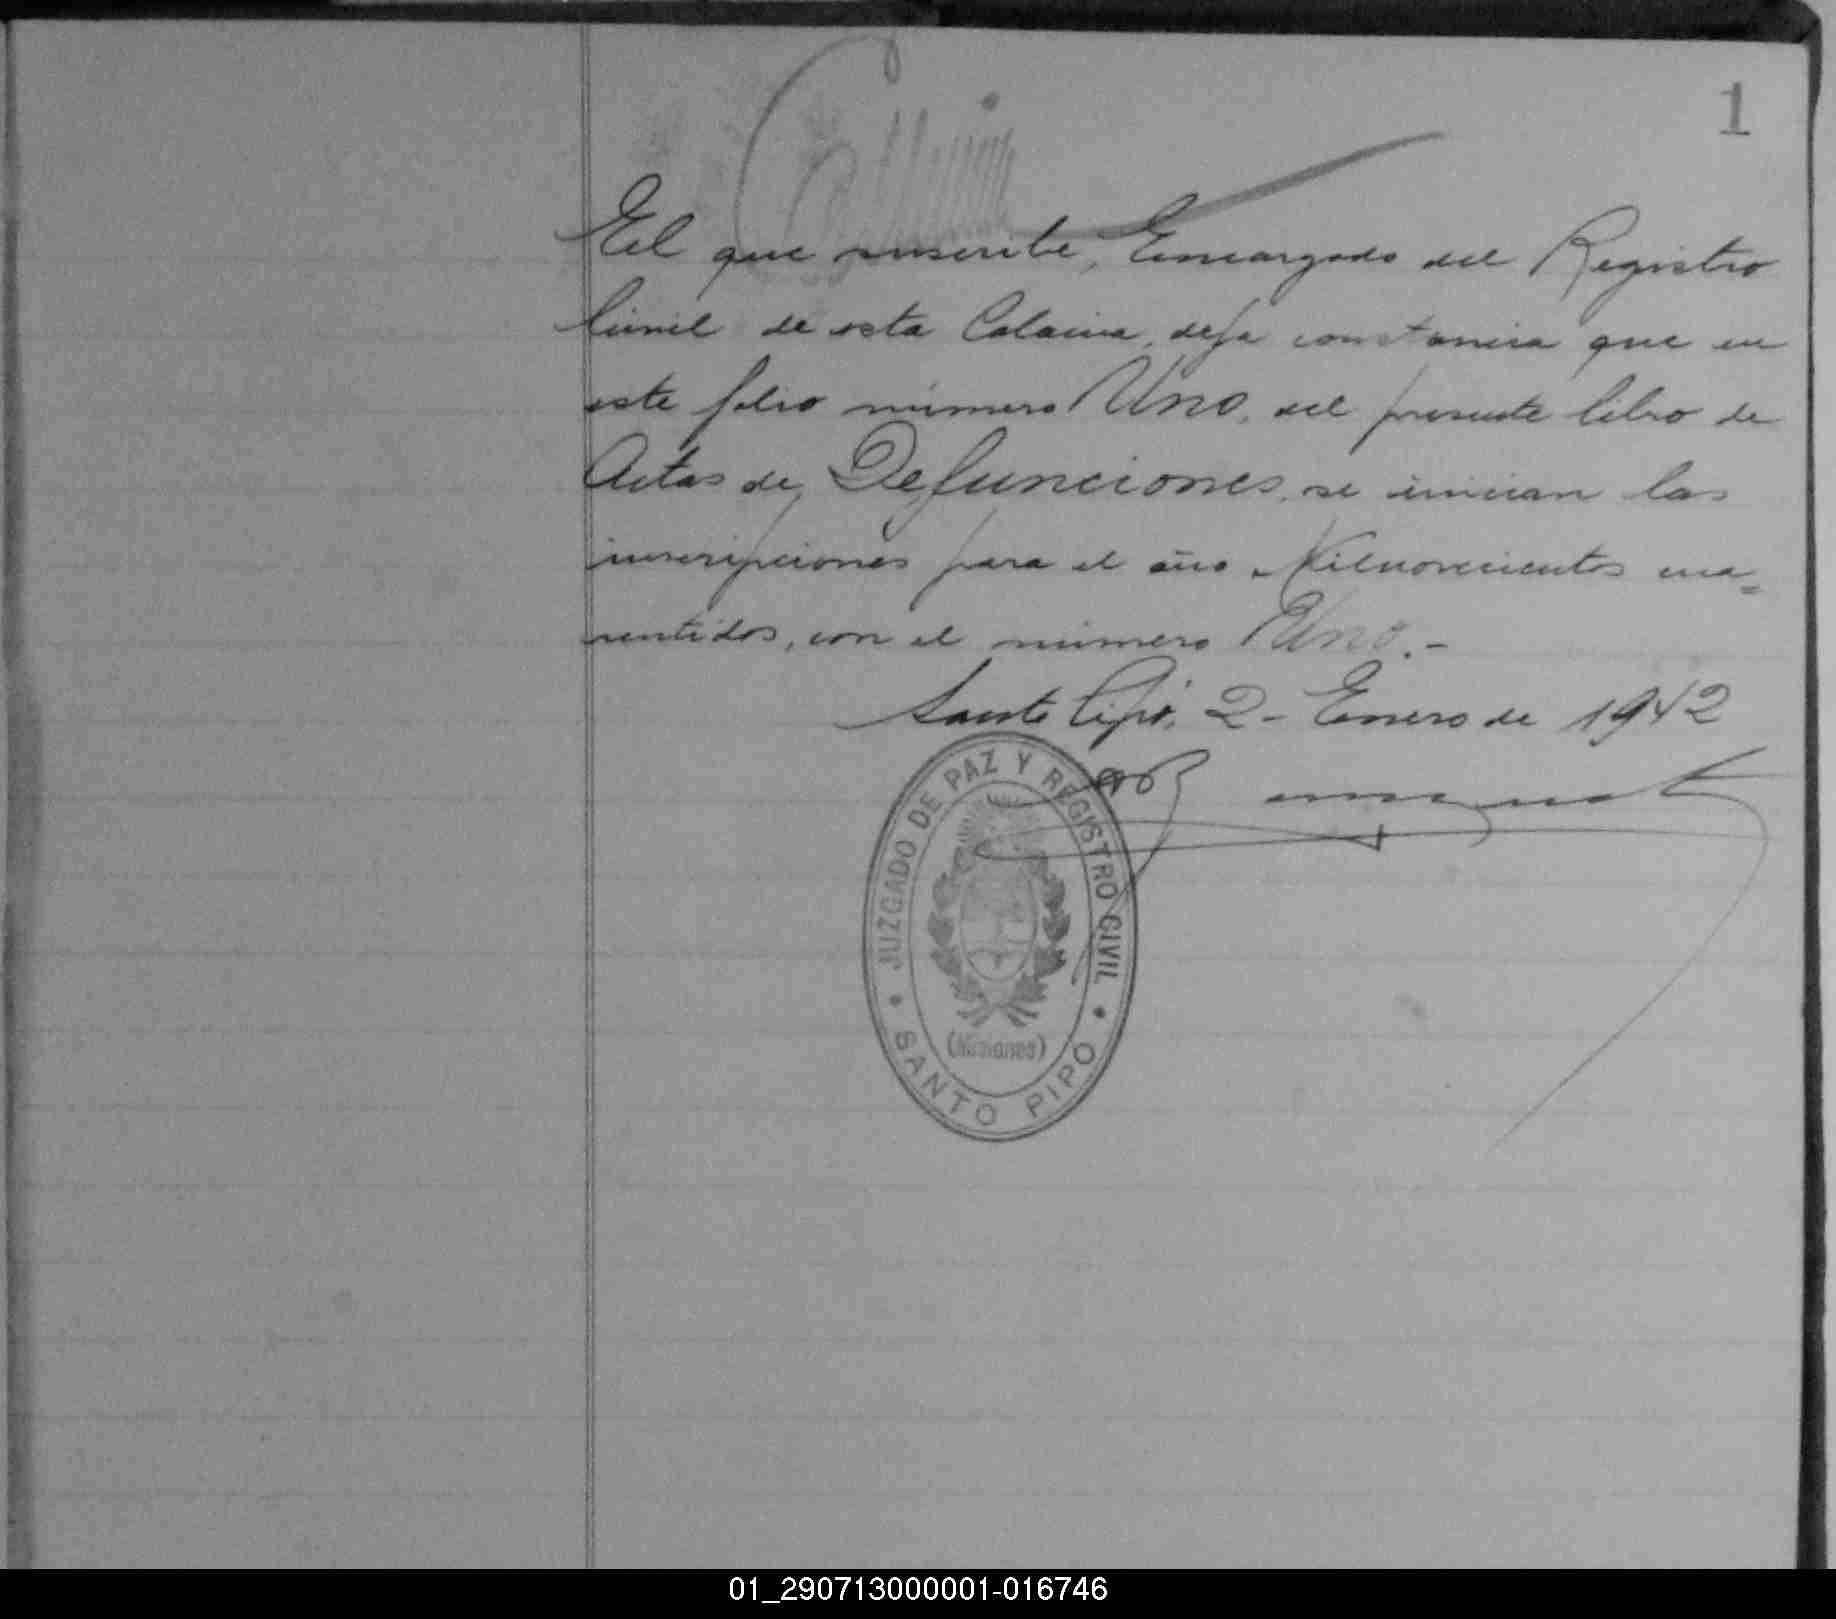 1
El que suscribe, Encargado del Registro
Civil de esta Colonia, deja constancia que en
este folio número Uno, del presente libro de
Actas de Defunciones, se inician las
inscripciones para el año Milnovecientos cua=
rentidos, con el número Uno.-
Santo Pipó, 2 - Enero de 1942
JUZGADO DE PAZ Y REGISTRO CIVIL
(Misiones)
SANTO PIPO
01_290713000001-016746